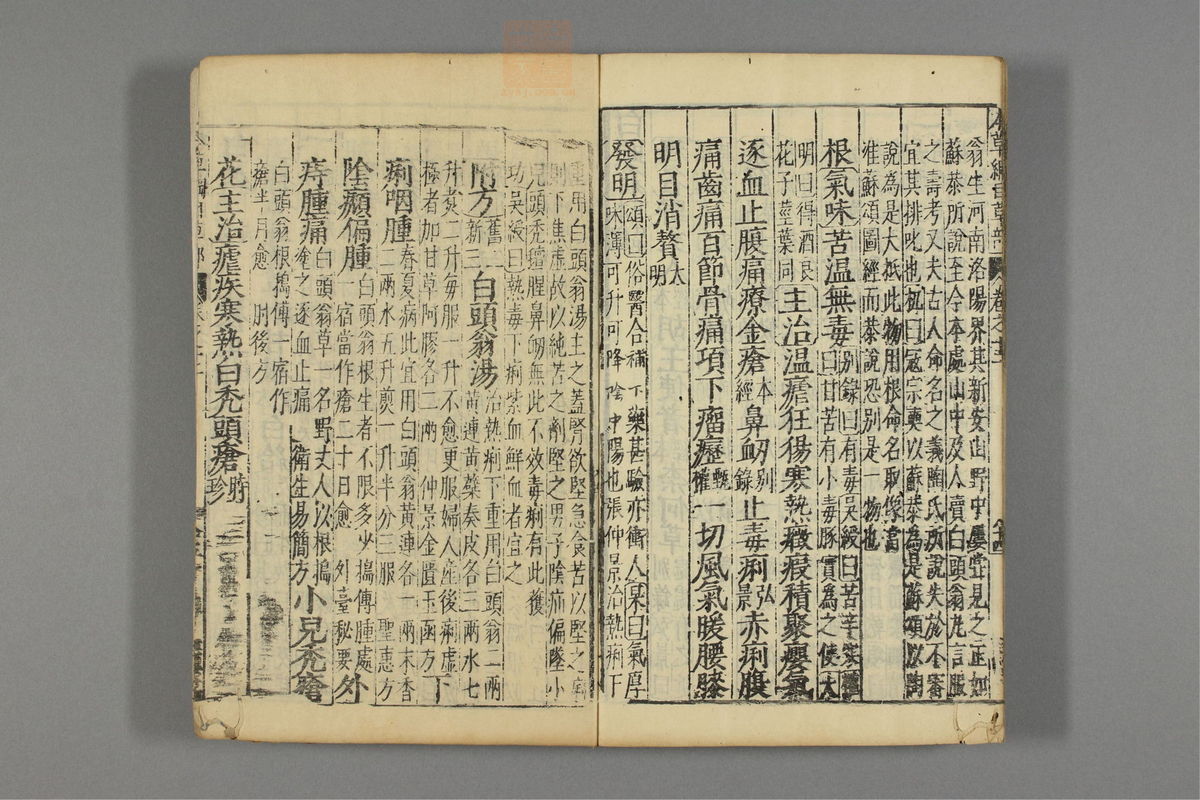 翁生河南洛陽界其新安山野中屢嘗見之正如
蘇恭所說至今本處山中及人賣白頭翁丸言服
之壽考又失古人命名之義陶氏所說失於不審
宜其排叱也机曰寇宗奭以蘇恭為是蘇頌以陶
說為是大抵此物用根命名取像當
准蘇頌圖經而恭說恐别是一物也
根氣味苦温無毒别錄曰有毒吳綬曰苦辛寒權
曰甘苦有小毒豚實為之使大
明曰得酒良
花子莖葉同主治温瘧狂㑥寒熱癥瘕積聚癭氣
逐血止腹痛療金瘡本經鼻衄别錄止毒痢弘景赤痢腹
痛齒痛百節骨痛項下瘤癧甄權一切風氣暖腰膝
明目消贅大明
發明頌曰俗醫合補下藥甚驗亦衝人杲曰氣厚
味薄可升可降陰中陽也張仲景治熱痢下
重用白頭翁湯主之蓋腎欲堅急食苦以堅之痢
則下焦虛故以純苦之劑堅之男子陰疝偏墜小
兒頭禿羶腥鼻衄無此不效毒痢有此獲
功吳綬曰熱毒下痢紫血鮮血者宜之
附方舊二新三白頭翁湯治熱痢下重用白頭翁二兩
黃連黃蘗秦皮各三兩水七
升煑二升每服一升不愈更服婦人産後痢虛
極者加甘草阿膠各二兩 仲景金匱玉函方下
痢咽腫春夏病此宜用白頭翁黃連各一兩末香
二兩水五升煎一升半分三服 聖惠方
陰㿗偏腫白頭翁根生者不限多少搗傅腫處
一宿當作瘡二十日愈 外臺秘要外
痔腫痛白頭翁草一名野丈人以根搗
塗之逐血止痛 衞生易簡方小兒禿瘡
白頭翁根搗傅一宿作
瘡半月愈 肘後方
花主治瘧疾寒熱白禿頭瘡時珍